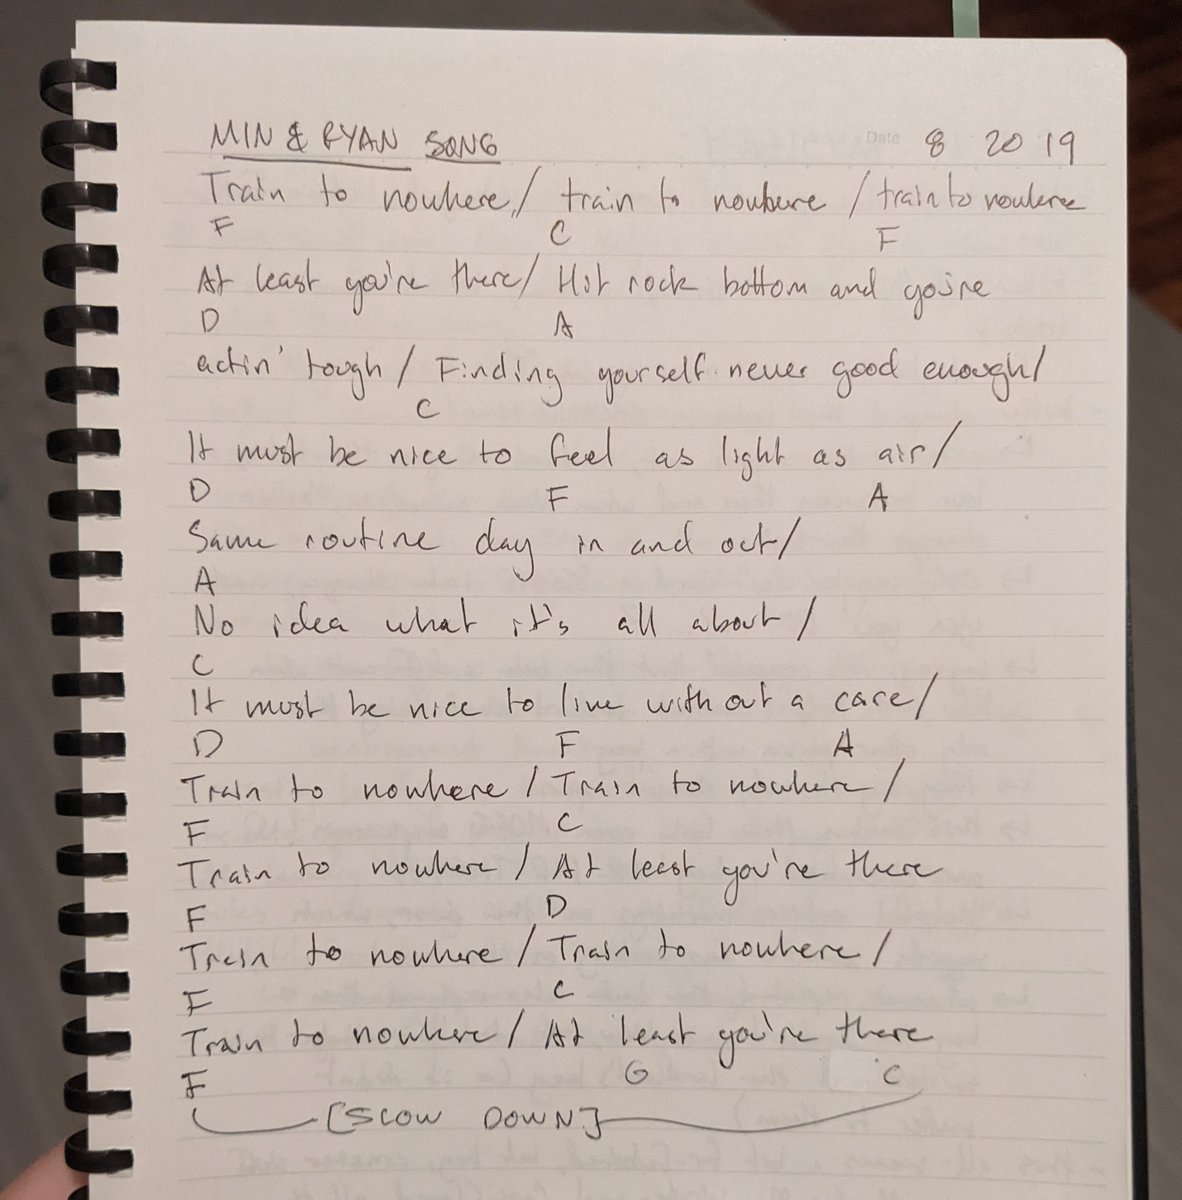 MIN & RYAN SONG Date 8 20 19
Train to nowhere, / train to nowhere / train to nowhere
F C F
At least you're there / Hit rock bottom and you're
D A
actin' tough / Finding yourself never good enough /
C
It must be nice to feel as light as air /
D F A
Same routine day in and out /
A
No idea what it's all about /
C
It must be nice to live without a care /
D F A
Train to nowhere / Train to nowhere /
F C
Train to nowhere / At least you're there
F D
Train to nowhere / Train to nowhere /
F C
Train to nowhere / At least you're there
F G C
[SLOW DOWN]